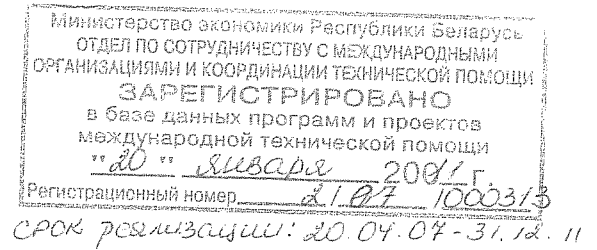 Министерство экономики Республики Беларусь
ОТДЕЛ ПО СОТРУДНИЧЕСТВУ С МЕЖДУНАРОДНЫМИ
ОРГАНИЗАЦИЯМИ И КООРДИНАЦИИ ТЕХНИЧЕСКОЙ ПОМОЩИ
ЗАРЕГИСТРИРОВАНО
в базе данных программ и проектов
международной технической помощи
"20" января 2011 г.
Регистрационный номер 2/07/000313
срок реализации: 20.04.07-31.12.11